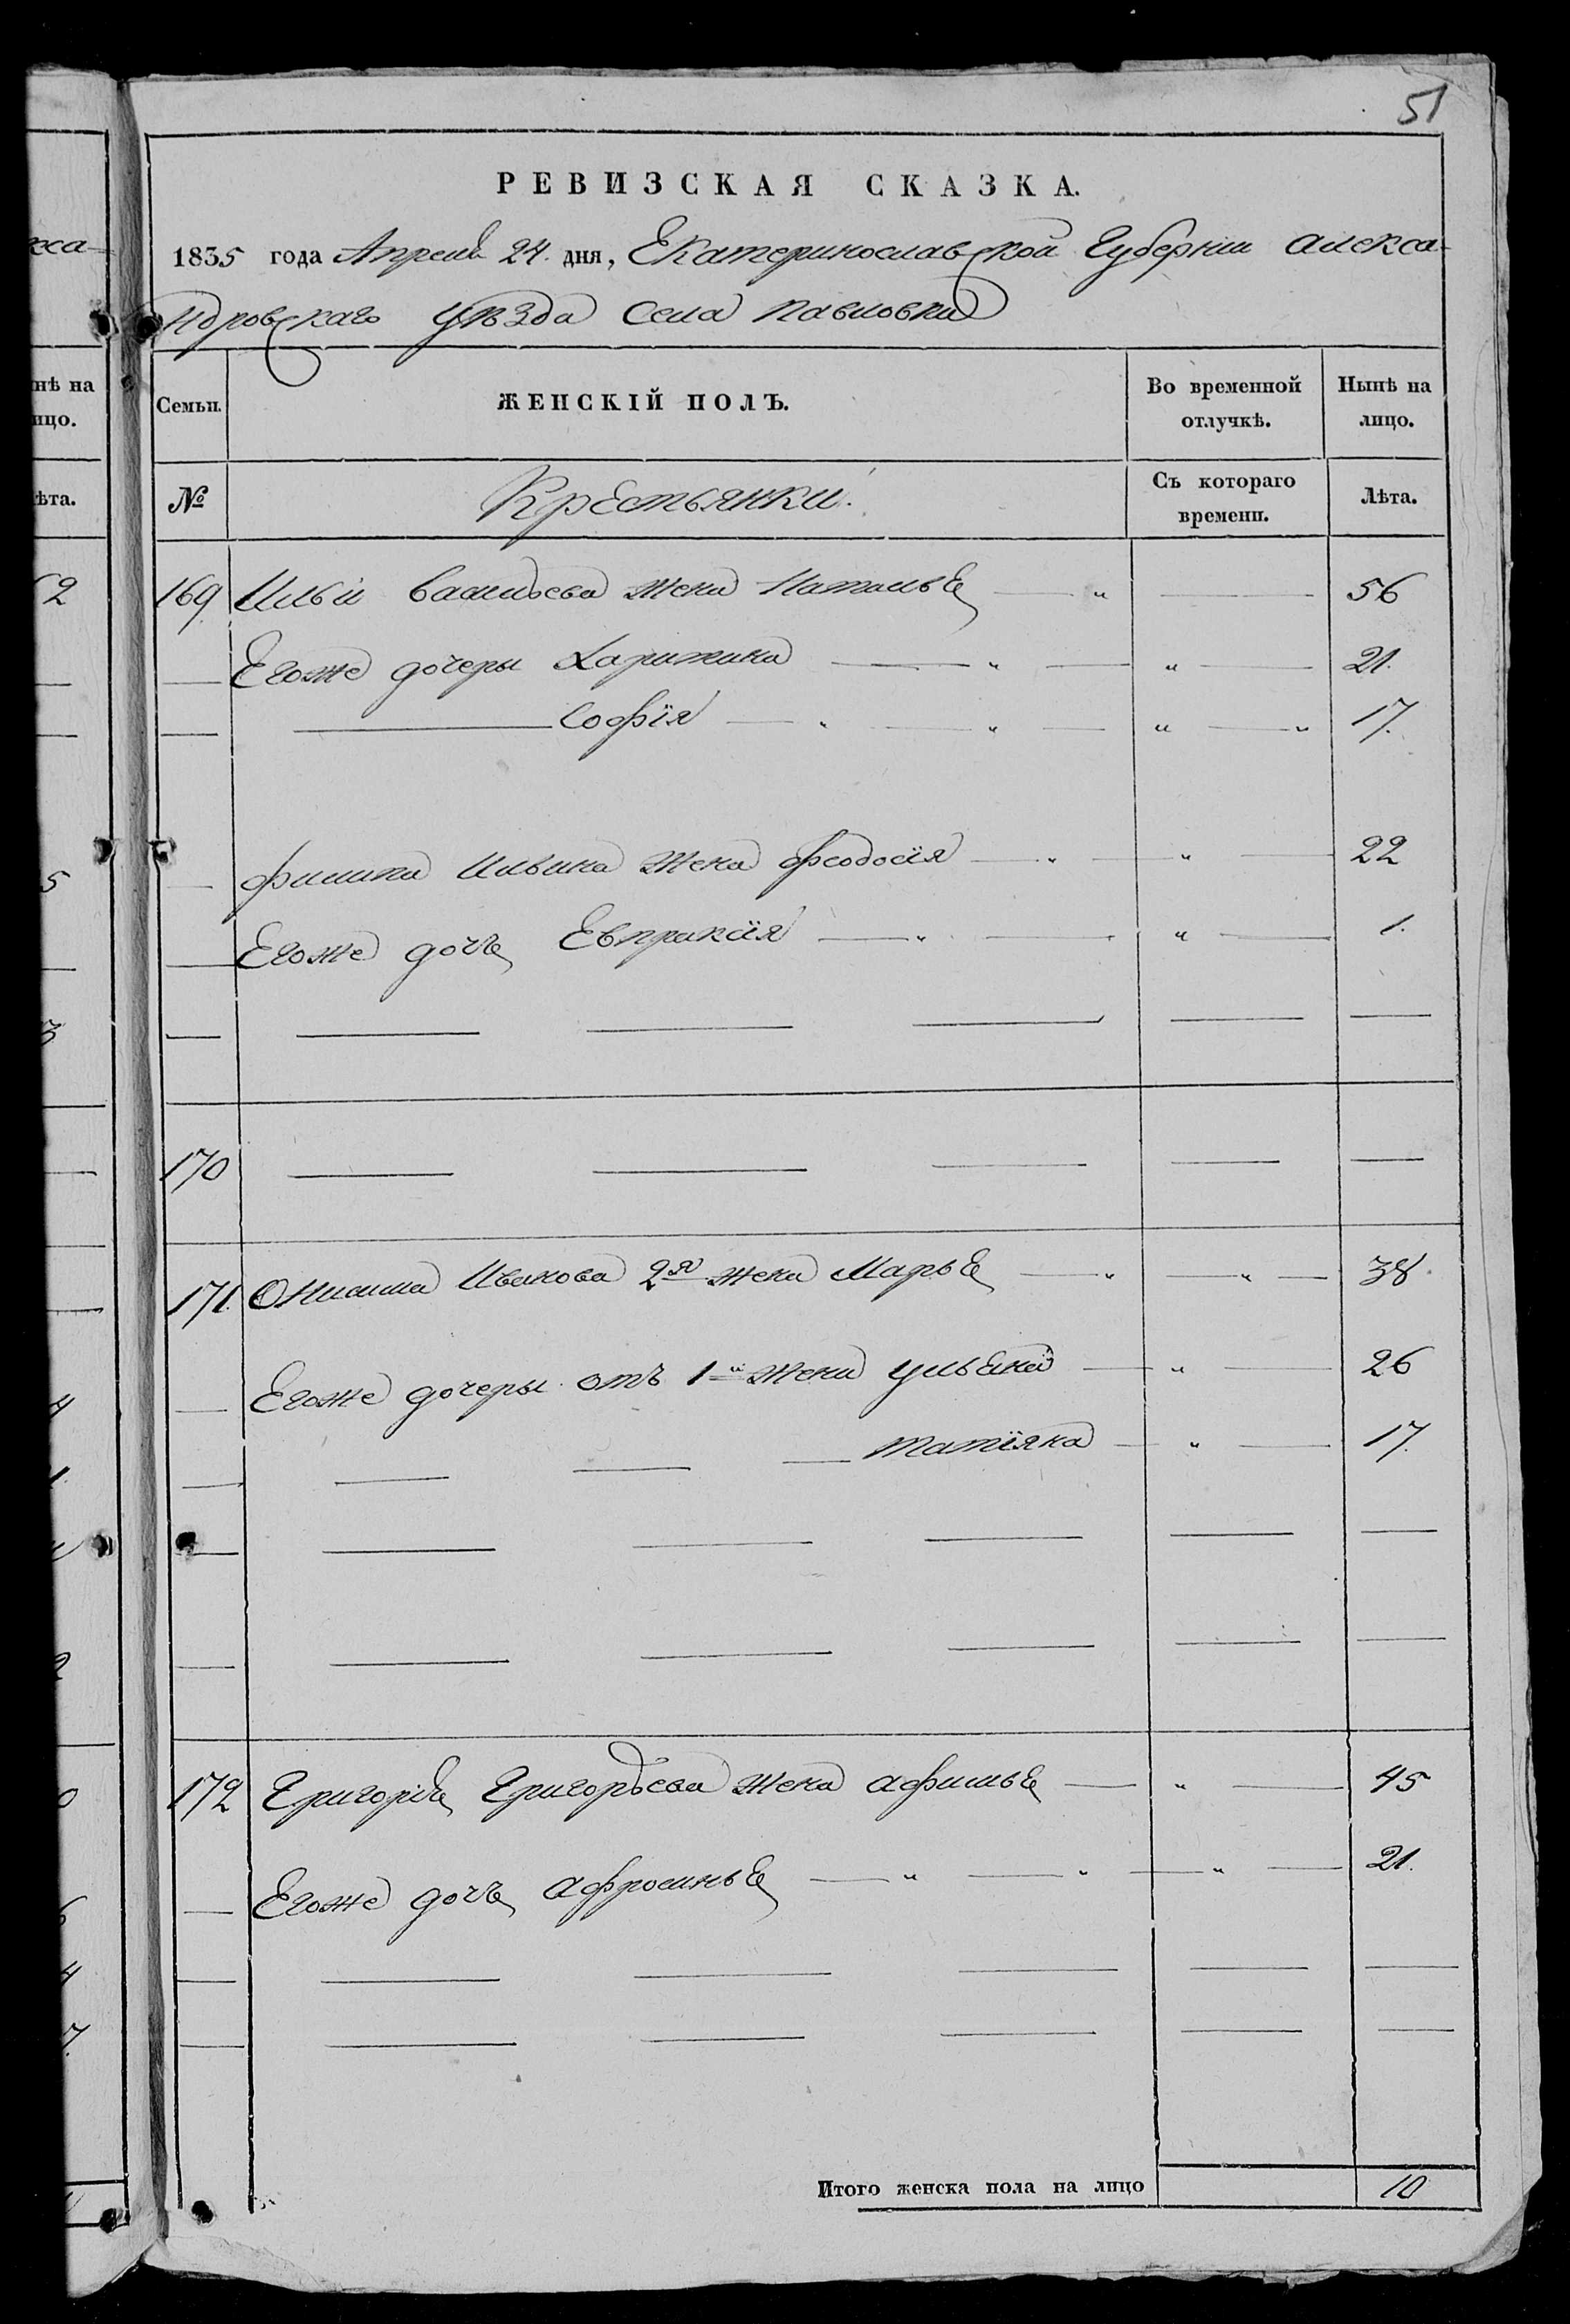 51
РЕВИЗСКАЯ СКАЗКА.
1835 года Апреля 24. дня, Екатеринославской Губернии Алекса-
ндровскаго уѣзда Села Павловки
Семьи. ЖЕНСКІЙ ПОЛЪ. Во временной отлучкѣ. Нынѣ на лицо.
№ Крестьянки. Съ котораго времени. Лѣта.
169 Ильи Васильева жена Наталья — " — 56
— Егоже дочеры Харитина — " — " — 21.
— — София — " — " — " — " 17.
— Филипа Ильина жена Феодосия — " — " — 22
— Егоже дочь Евпраксия — " — " — 1.
— — — — — —
170 — — — — —
171. Онисима Иванова 2я жена Марья — " — " — 38
— Егоже дочеры отъ 1й жены Ульяна — " — 26
— — — — Татияна — " — 17.
— — — — — —
— — — — — —
172 Григория Григорьева жена Афимья — " — 45
— Егоже дочь Афросинья — " — " — " — 21.
— — — — — —
— — — — — —
Итого женска пола на лицо 10
нѣ на
ицо.
ѣта.